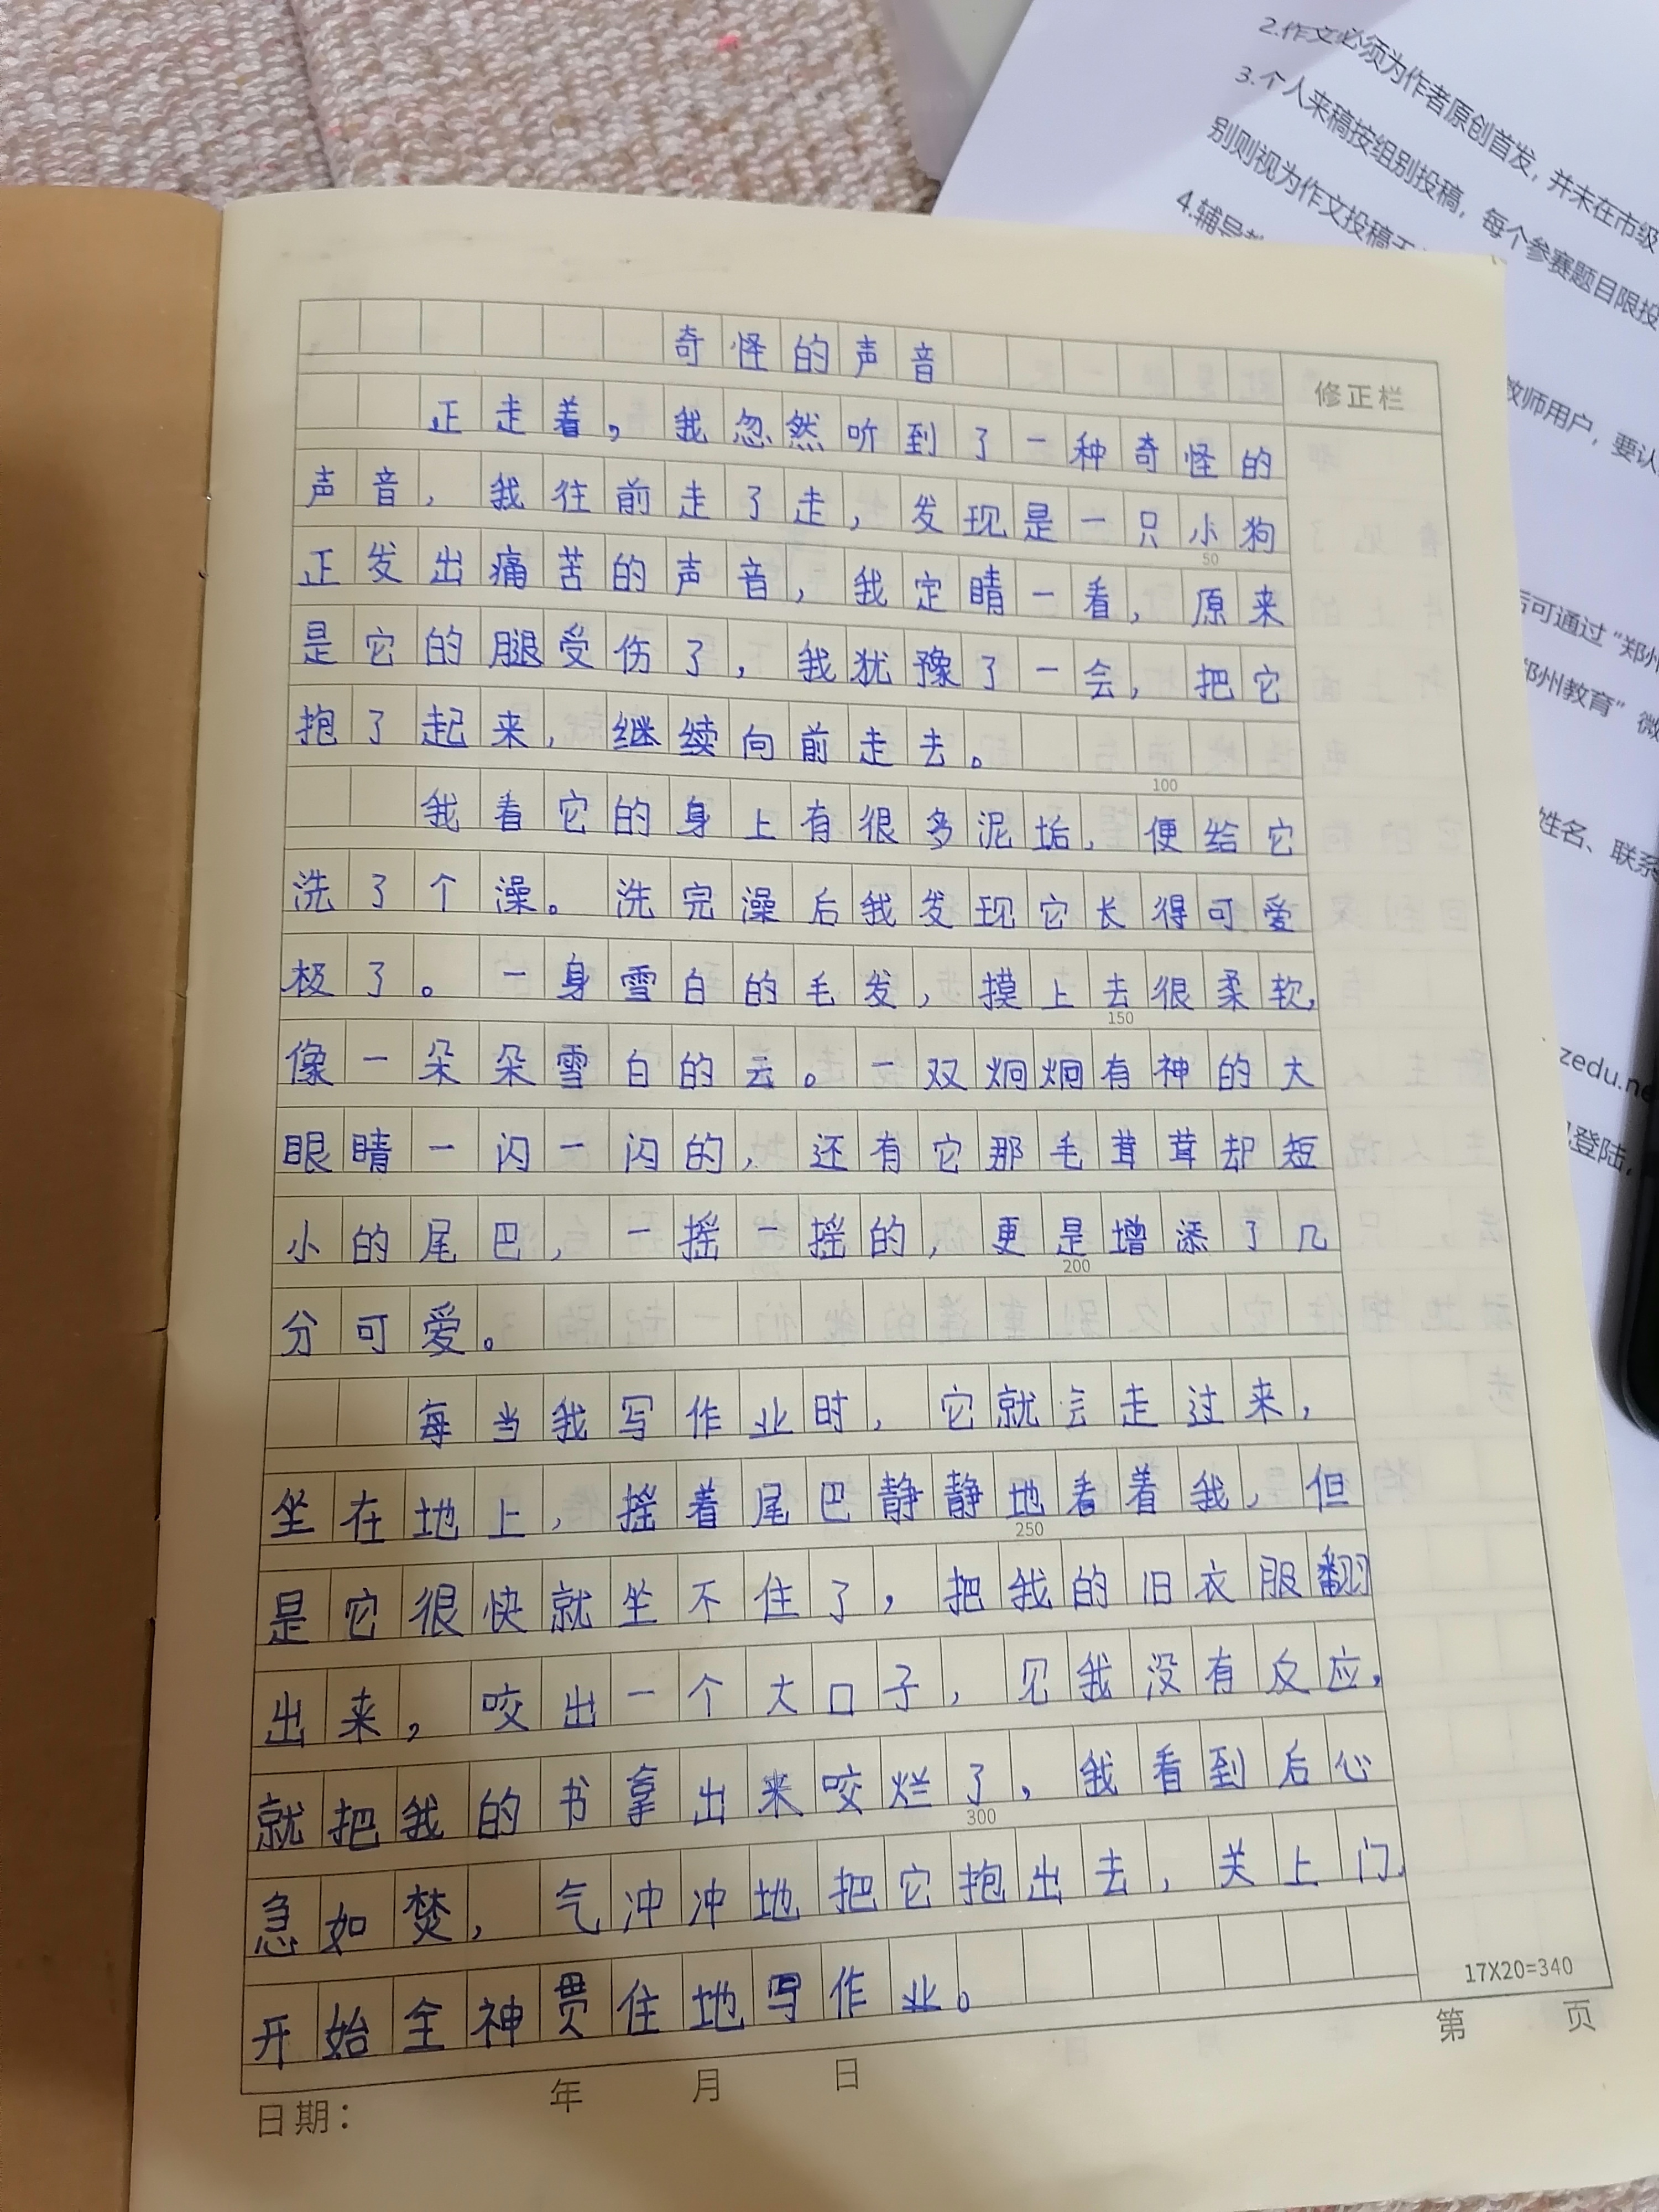 2.作文必须为作者原创首发，并未在市级
3.个人来稿按组别投稿，每个参赛题目限投
别则视为作文投稿无
4.辅导教
教师用户，要认
后可通过“郑州
郑州教育”微
姓名、联系
zedu.ne
登陆，
奇怪的声音
修正栏
正走着，我忽然听到了一种奇怪的
声音，我往前走了走，发现是一只小狗
50
正发出痛苦的声音，我定睛一看，原来
是它的腿受伤了，我犹豫了一会，把它
抱了起来，继续向前走去。
100
我看它的身上有很多泥垢，便给它
洗了个澡。洗完澡后我发现它长得可爱
极了。一身雪白的毛发，摸上去很柔软，
150
像一朵朵雪白的云。一双炯炯有神的大
眼睛一闪一闪的，还有它那毛茸茸却短
小的尾巴，一摇一摇的，更是增添了几
200
分可爱。
每当我写作业时，它就会走过来，
坐在地上，摇着尾巴静静地看着我，但
250
是它很快就坐不住了，把我的旧衣服翻
出来，咬出一个大口子，见我没有反应，
就把我的书拿出来咬烂了，我看到后心
300
急如焚，气冲冲地把它抱出去，关上门，
开始全神贯住地写作业。
17X20=340
日期： 年 月 日
第 页